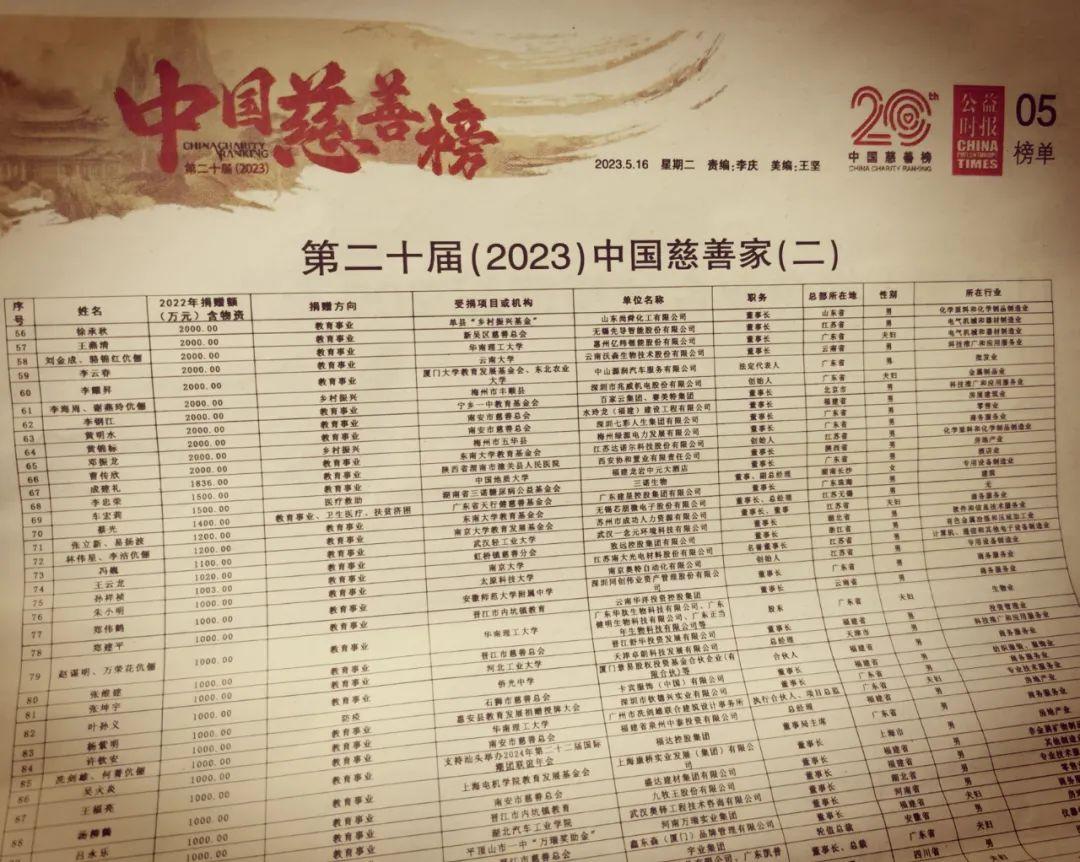 中国慈善榜
CHINA CHARITY RANKING
第二十届(2023)
2023.5.16 星期二 责编:李庆 美编:王坚
20th
中国慈善榜
CHINA CHARITY RANKING
公益时报
CHINA PHILANTHROPY TIMES
05
榜单
第二十届(2023)中国慈善家(二)
序号 姓名 2022年捐赠额（万元）含物资 捐赠方向 受捐项目或机构 单位名称 职务 总部所在地 性别 所在行业
56 徐承秋 2000.00 教育事业 单县“乡村振兴基金” 山东尚舜化工有限公司 董事长 山东省 男 化学原料和化学制品制造业
57 王燕清 2000.00 教育事业 新吴区慈善总会 无锡先导智能股份有限公司 董事长 江苏省 男 电气机械和器材制造业
58 刘金成、骆锦红伉俪 2000.00 教育事业 华南理工大学 惠州亿纬锂能股份有限公司 董事长 广东省 夫妇 电气机械和器材制造业
59 李云春 2000.00 教育事业 云南大学 云南沃森生物技术股份有限公司 董事长 云南省 男 科技推广和应用服务业
60 李耀昇 2000.00 教育事业 厦门大学教育发展基金会、东北农业大学 中山源润汽车服务有限公司 法定代表人 广东省 男 批发业
61 李海周、谢燕玲伉俪 2000.00 乡村振兴 梅州市丰顺县 深圳市兆威机电股份有限公司 创始人 广东省 夫妇 金属制品业
62 李钢江 2000.00 教育事业 宁乡一中教育基金会 百家云集团、赛美特集团 董事长 北京市 男 科技推广和应用服务业
63 黄明水 2000.00 教育事业 南安市慈善总会 水玲龙（福建）建设工程有限公司 董事长 福建省 男 房屋建筑业
64 黄锦标 2000.00 教育事业 南安市慈善总会 深圳七彩人生集团有限公司 董事长 广东省 男 零售业
65 邓振龙 2000.00 乡村振兴 梅州市五华县 梅州绿源电力发展有限公司 董事长 广东省 男 商务服务业
66 曹传欣 2000.00 教育事业 东南大学教育基金会 江苏达诺尔科技股份有限公司 创始人 江苏省 男 化学原料和化学制品制造业
67 成建礼 1836.00 教育事业 陕西省渭南市潼关县人民医院 西安协和置业有限责任公司 董事长 陕西省 男 房地产业
68 李忠荣 1500.00 教育事业 中国地质大学 福建龙岩中元大酒店 董事长 广东省 男 酒店业
69 车宏莉 1500.00 医疗救助 湖南省三诺糖尿病公益基金会 三诺生物 董事、副总经理 湖南长沙 女 专用设备制造业
70 蔡光 1400.00 教育事业、卫生医疗、扶贫济困 广东省天行健慈善基金会 广东建星控股集团有限公司 董事长 广东珠海 男 建筑
71 张立新、易扬波 1200.00 教育事业 东南大学教育基金会 无锡芯朋微电子股份有限公司 董事长、总经理 江苏无锡 男 无
72 林伟星、李洁伉俪 1200.00 教育事业 南京大学教育发展基金会 苏州市成功人力资源有限公司 董事长、董事 江苏省 夫妇 商务服务业
73 冯巍 1100.00 教育事业 武汉轻工大学 武汉一念元环境科技有限公司 董事长 湖北省 男 软件和信息技术服务业
74 王云龙 1020.00 教育事业 虹桥镇慈善分会 致远控股集团有限公司 名誉董事长 浙江省 男 有色金属冶炼和压延加工业
75 孙祥祯 1003.00 教育事业 南京大学 江苏南大光电材料股份有限公司 创始人 江苏省 男 计算机、通信和其他电子设备制造业
76 朱小明 1000.00 教育事业 太原科技大学 南京奥特自动化有限公司 董事长 江苏省 男 专用设备制造业
77 郑伟鹤 1000.00 教育事业 安徽师范大学附属中学 深圳同创伟业资产管理股份有限公司 董事长 广东省 男 商务服务业
78 郑建平 1000.00 教育事业 晋江市内坑镇教育 云南华洋投资控股集团 董事长 云南省 男 商务服务业
79 赵谋明、万荣花伉俪 1000.00 教育事业 华南理工大学 广东华肽生物科技有限公司、广东健明生物科技有限公司、广东正当年生物科技有限公司等 股东 广东省 夫妇 生物业
80 张维建 1000.00 教育事业 晋江市慈善总会 晋江舒华投资发展有限公司 董事长 福建省 男 投资管理业
81 张坤宇 1000.00 教育事业 河北工业大学 天津卓朗科技发展有限公司 总经理 天津市 男 科技推广和应用服务业
82 叶孙义 1000.00 教育事业 侨光中学 厦门景易股权投资基金合伙企业(有限合伙)等 合伙人 福建省 男 商务服务业
83 杨紫明 1000.00 教育事业 石狮市慈善总会 卡宾服饰（中国）有限公司 董事长 福建省 男 纺织服装、服饰业
84 许钦安 1000.00 防疫 惠安县教育发展捐赠授牌大会 深圳市钦德兴实业有限公司 董事长 广东省 男 商务服务业
85 冼剑雄、柯菁伉俪 1000.00 教育事业 华南理工大学 广州市冼剑雄联合建筑设计事务所 执行合伙人、项目总监 广东省 夫妇 专业技术服务业
86 吴火炎 1000.00 教育事业 南安市慈善总会 福建省泉州中泰投资有限公司 总经理 福建省 男 房地产业
87 王福亮 1000.00 教育事业 支持汕头举办2024年第二十二届国际潮团联谊年会 福达控股集团 董事局主席 广东省 男 商务服务业
88 1000.00 教育事业 上海电机学院教育发展基金会 上海康桥实业发展（集团）有限公司 董事长 上海市 男 房地产业
吕永乐 1000.00 教育事业 南安市慈善总会 盛达建材集团有限公司 董事长 福建省 男
晋江市内坑镇教育 九牧王股份有限公司 董事长 福建省
湖北汽车工业学院 武汉奥铎工程技术咨询有限公司 董事长 湖北省
平顶山市一中“万瑞奖助金” 河南万瑞实业集团 董事长 河南省